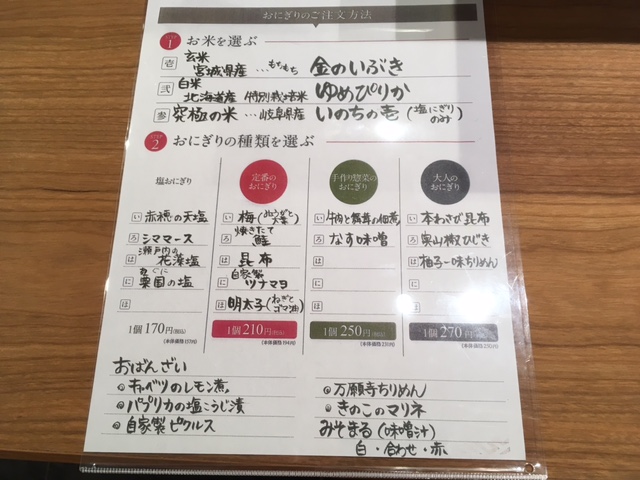 おにぎりのご注文方法
STEP 1 お米を選ぶ
壱 玄米 宮城県産 …もちもち 金のいぶき
弐 白米 北海道産 (特別栽培米 ゆめぴりか
参 究極の米 …岐阜県産 いのちの壱(塩にぎりのみ)
STEP 2 おにぎりの種類を選ぶ
塩おにぎり
い 赤穂の天塩
ろ シママース
は 瀬戸内の花藻塩
に 粟国の塩
ほ
1個170円(税込)
(本体価格157円)
定番のおにぎり
い 梅(みょうがと大葉)
ろ 焼きたて鮭
は 昆布
に 自家製ツナマヨ
ほ 明太子(ねぎとゴマ油)
1個210円(税込)
(本体価格194円)
手作り惣菜のおにぎり
い 牛肉と舞茸の佃煮
ろ なす味噌
は
に
ほ
1個250円(税込)
(本体価格231円)
大人のおにぎり
い 本わさび昆布
ろ 実山椒ひじき
は 柚子一味ちりめん
に
ほ
1個270円(税込)
(本体価格250円)
おばんざい
キャベツのレモン煮
パプリカの塩こうじ漬
自家製ピクルス
万願寺ちりめん
きのこのマリネ
みそまる(味噌汁)
白・合わせ・赤